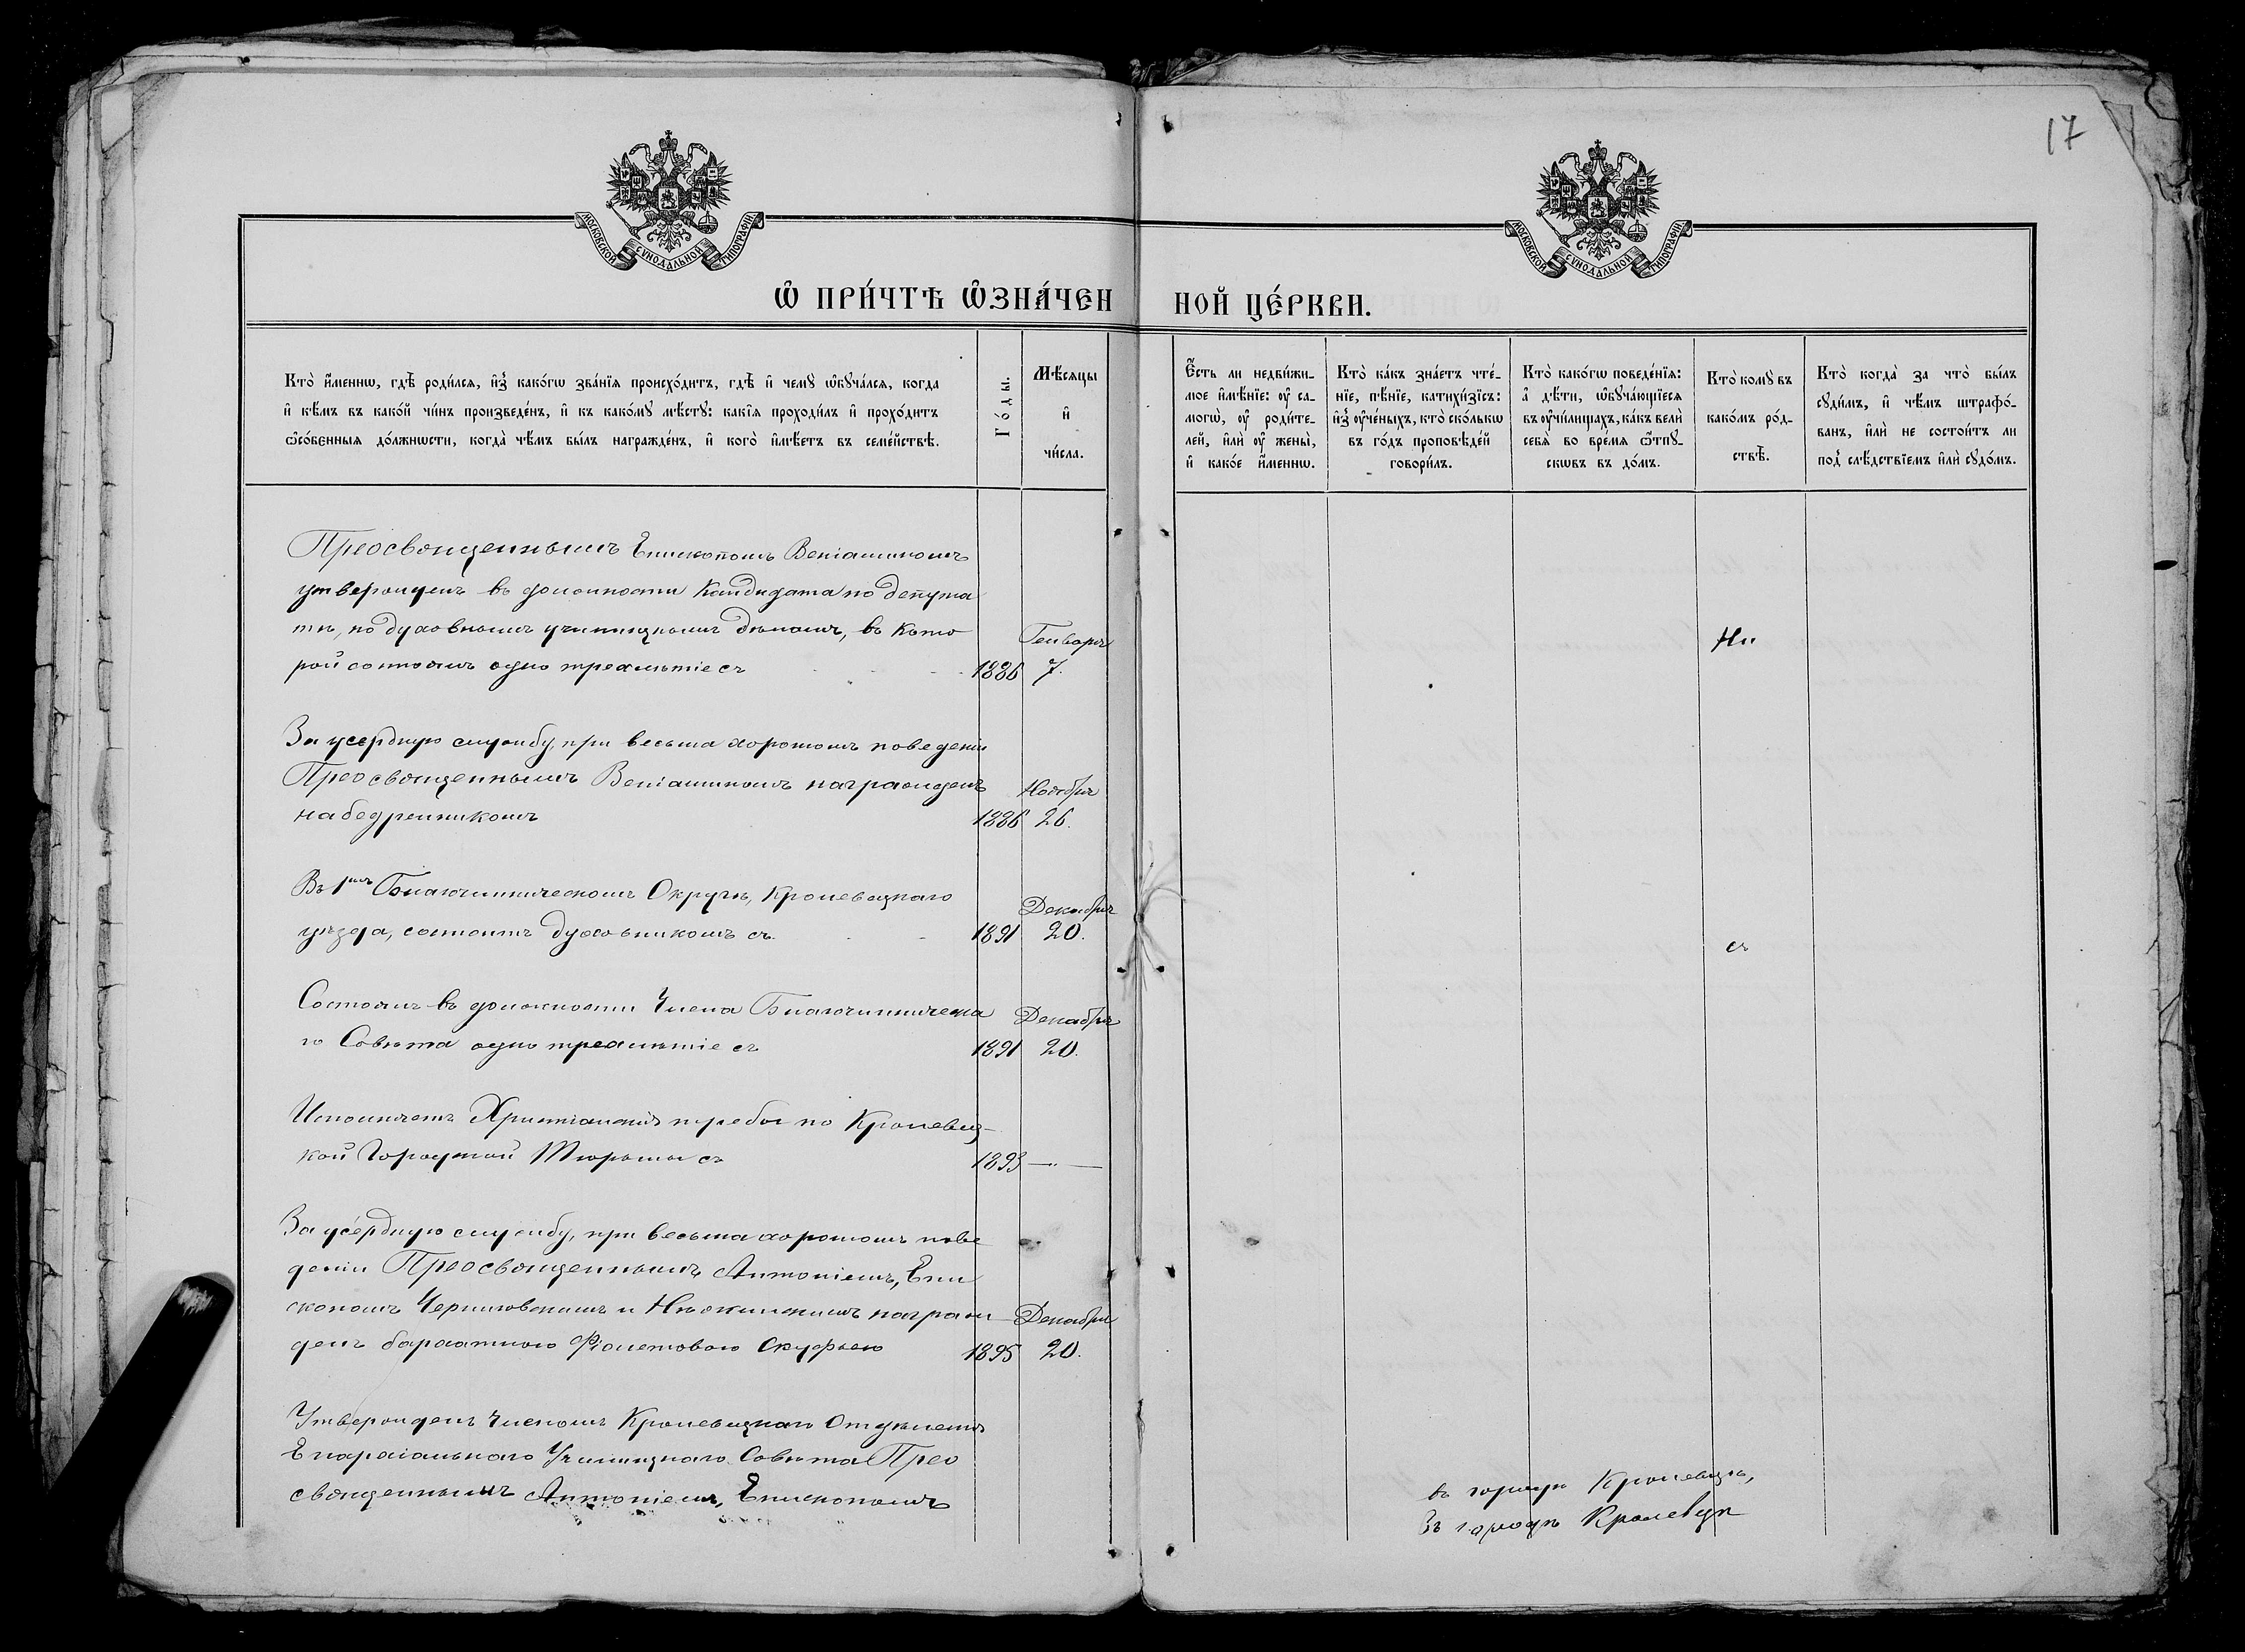 17
МОСКОВСКОЙ СѴНОДАЛЬНОЙ ТИПОГРАФІИ.
МОСКОВСКОЙ СѴНОДАЛЬНОЙ ТИПОГРАФІИ.
Ѡ҆ ПРИ́ЧТѢ Ѡ҆ЗНА́ЧЕННОЙ ЦЕ́РКВИ.
Кто̀ и҆́меннѡ, гдѣ̀ роди́лсѧ, и҆з̾ како́гѡ зва́нїѧ происхо́дитъ, гдѣ̀ и҆ чемꙋ̀ ѡ҆бꙋча́лсѧ, когда̀
и҆ кѣ́мъ въ како́й чи́нъ произведе́нъ, и҆ къ како́мꙋ мѣ́стꙋ: какі̑ѧ проходи́лъ и҆ прохо́дитъ
ѻ҆со́бенныѧ до́лжнѡсти, когда̀ чѣ́мъ бы́лъ награжде́нъ, и҆ кого̀ и҆мѣ́етъ въ семе́йствѣ.
Го́ды.
Мѣ́сѧцы
и҆
чи́сла.
Е҆́сть ли недви́жи-
мое и҆мѣ́нїе: ᲂу҆ са-
могѡ̀, ᲂу҆ роди́те-
лей, и҆лѝ ᲂу҆ жены̀,
и҆ како́е и҆́меннѡ.
Кто̀ ка́къ зна́етъ чте́-
нїе, пѣ́нїе, катихи́зїсъ:
и҆з̾ ᲂу҆че́ныхъ, кто̀ ско́лькѡ
въ го́дъ проповѣ́дей
говори́лъ.
Кто̀ како́гѡ поведе́нїѧ:
а҆ дѣ́ти, ѡ҆бꙋча́ющїесѧ
въ ᲂу҆чи́лищахъ, ка́къ велѝ
себѐ во вре́мѧ ѿпꙋ-
скѡвъ въ до́мъ.
Кто̀ комꙋ̀ въ
како́мъ ро́д-
ствѣ.
Кто̀ когда̀ за что̀ бы́лъ
сꙋди́мъ, и҆ чѣ́мъ штрафо́-
ванъ, и҆лѝ не состои́тъ ли
под̾ слѣ́дствїемъ и҆лѝ сꙋдо́мъ.
Преосвященнымъ Епископомъ Веніаминомъ
утвержденъ въ должности Кандидата по депута
тѣ, по духовнымъ училищнымъ дѣламъ, въ кото Генваря
рой состоялъ одно трехлѣтіе съ 1886 7.
За усердную службу, при весьма хорошомъ поведеніи
Преосвященнымъ Веніаминомъ награжденъ Ноября
набедренникомъ 1886 26.
Въ 1мъ Благочинническомъ Округѣ, Кролевецкаго Декабря
уѣзда, состоитъ духовникомъ съ 1891 20.
Состоялъ въ должности Члена Благочинническа Декабря
го Совѣта одно трехлѣтіе съ 1891 20.
Исполняетъ Христіанскія требы по Кролевец-
кой Городской Тюрьмы съ 1893 —
За усердную службу, при весьма хорошомъ пове
деніи Преосвященнымъ Антоніемъ, Епи
скопомъ Черниговскимъ и Нѣжинскимъ награж Декабря
денъ бархатною Фіолетовою Скуфьею 1895 20.
Утвержденъ Членомъ Кролевецкаго Отдѣленія
Епархіальнаго Училищнаго Совѣта Прео
священнымъ Антоніемъ, Епископомъ
съ
въ городѣ Кролевцѣ,
Въ городѣ Кролевцѣ